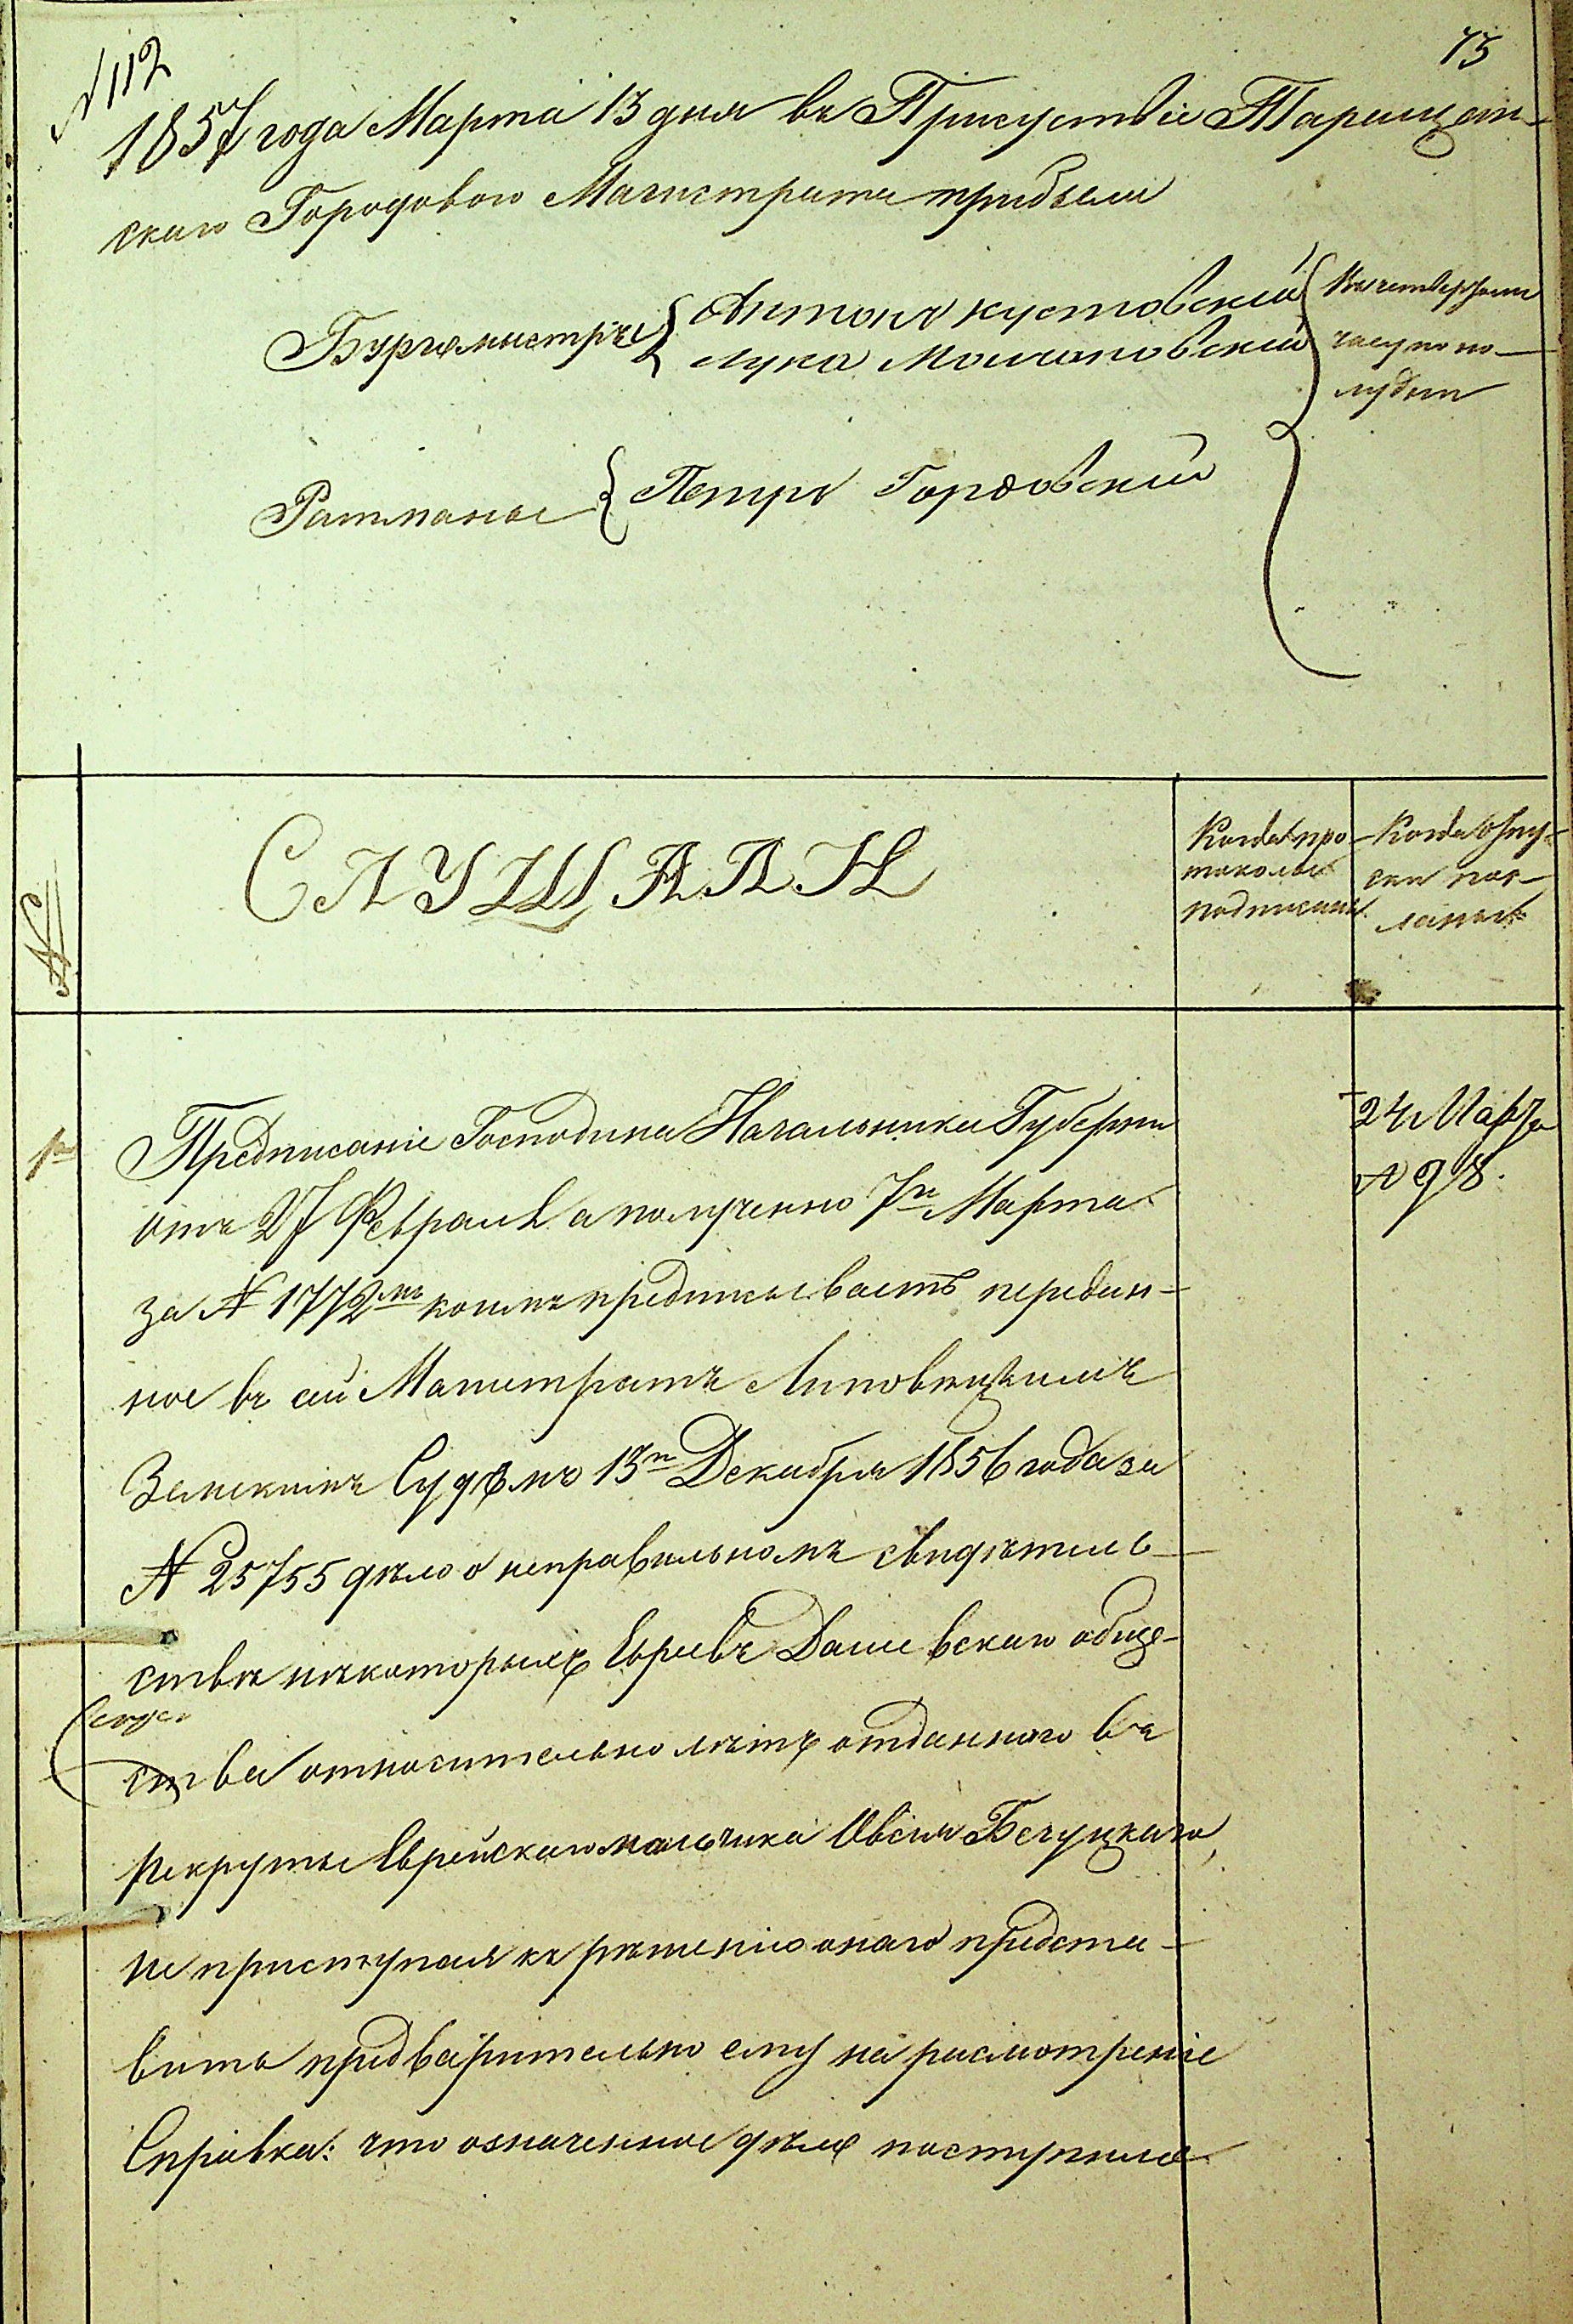 № 112
75
1857 года Марта 13 дня въ Присуствіе Таращан-
скаго Городоваго Магистрата прибыли
Бургомистры { Антонъ Кустовскій
Лука Мошановскій
въ четвертомъ
часу по по-
лудни
Ратманы { Петръ Гордовскій
№
СЛУШАЛИ
Когда про-
токолы
подписаны
Когда отпу-
ски пос-
ланы
1е
Предписаніе Господина Начальника Губерніи
отъ 27 Февраля а полученно 7го Марта
за № 1772мъ коимъ предписываетъ передан-
ное въ сей Магистратъ Липовецкимъ
Земскимъ Судомъ 13го Декабря 1856 года за
№ 25755 дѣло о неправильномъ свидѣтель-
ствѣ нѣкоторыхъ Евреевъ Дашевскаго обще-
ства относительно лѣтъ отданнаго въ
рекруты Еврейскаго мальчика Овсія Бечуцкаго,
не приступая къ рѣшенію онаго предста-
вить предварительно ему на расмотреніе
Справка: что означенное дѣло поступило
24 Марта
№ 98.